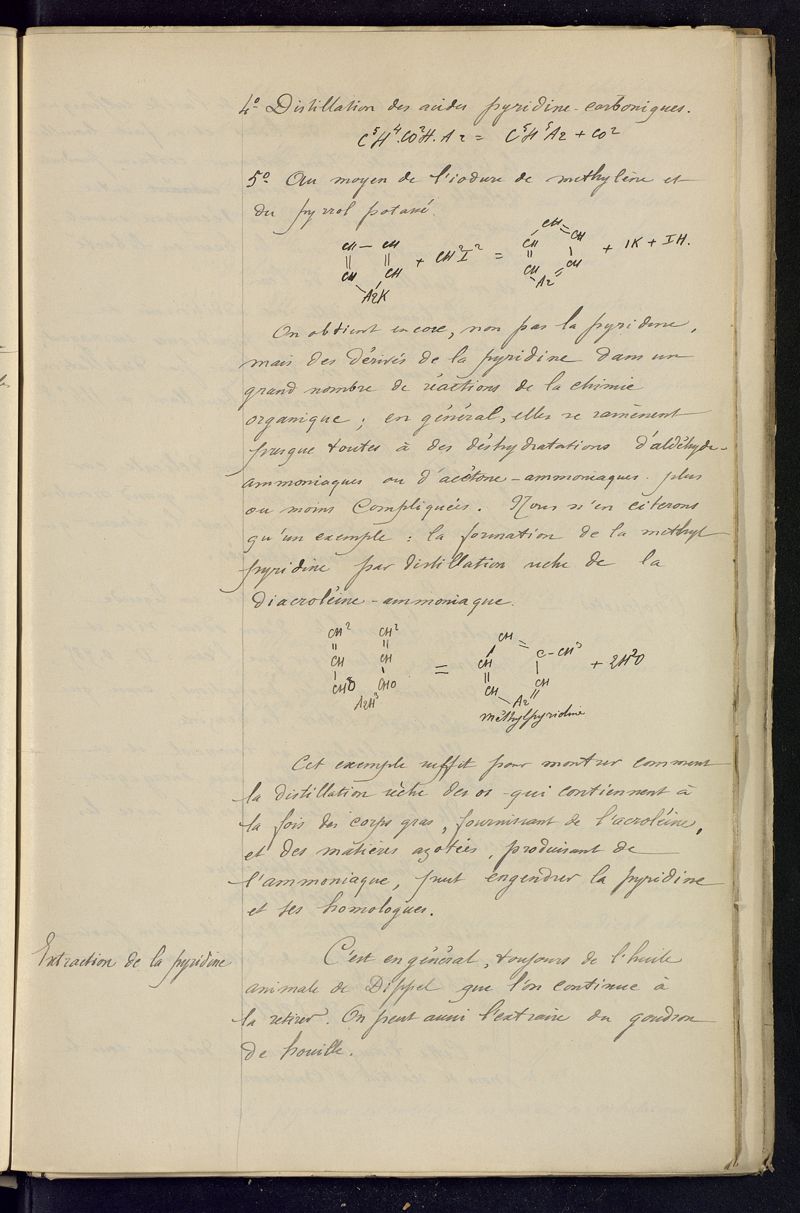 4º Distillation des acides pyridine-carboniques.
C⁵H⁴.CO²H.Az = C⁵H⁵Az + CO²
5º Au moyen de l'iodure de méthylène et
du pyrrol potassé.
CH — CH
CH CH
AzK
+ CH²I² =
CH
CH CH
CH CH
Az
+ IK + IH.
On obtient encore, non pas la pyridine,
mais des dérivés de la pyridine dans un
grand nombre de réactions de la chimie
organique ; en général, elles se ramènent
presque toutes à des déshydratations d'aldéhyde-
ammoniaques ou d'acétone-ammoniaques plus
ou moins compliquées. Nous n'en citerons
qu'un exemple : la formation de la méthyl
pyridine par distillation sèche de la
diacroléine-ammoniaque.
CH² CH²
CH CH
CHO CHO
AzH³
=
CH
CH C-CH³
CH CH
Az
méthylpyridine
+ 2H²O
Cet exemple suffit pour montrer comment
la distillation sèche des os qui contiennent à
la fois des corps gras, fournissant de l'acroléine,
et des matières azotées, produisant de
l'ammoniaque, peut engendrer la pyridine
et ses homologues.
Extraction de la pyridine
C'est en général, toujours de l'huile
animale de Dippel que l'on continue à
la retirer. On peut aussi l'extraire du goudron
de houille.